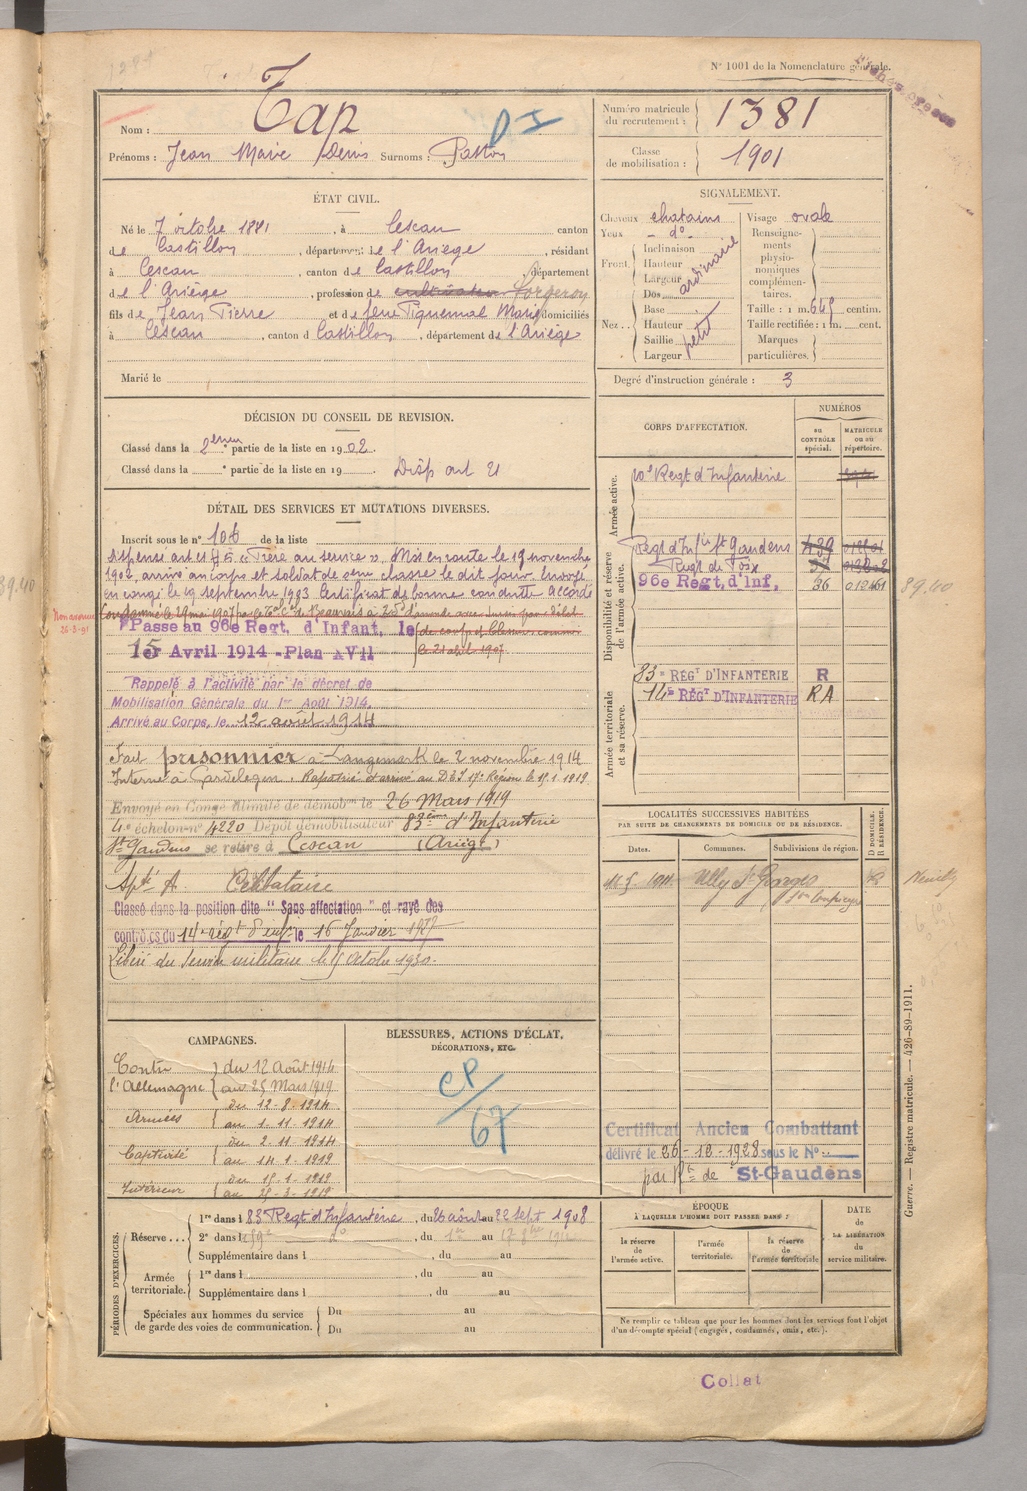 N° 1001 de la Nomenclature générale.
Nom : Tap
D I
Prénoms : Jean Marie Denis Surnoms :
Numéro matricule du recrutement : 1381
Classe de mobilisation : 1901
ÉTAT CIVIL.
Né le 7 octobre 1881, à Cescau canton
de Castillon, département de l'Ariège, résidant
à Cescau, canton de Castillon, département
de l'Ariège, profession de cultivateur forgeron
fils de Jean Pierre et de feue Piquemal Marie domiciliés
à Cescau, canton d Castillon, département de l'Ariège
Marié le
SIGNALEMENT.
Cheveux chatains
Yeux d°
Front. Inclinaison Hauteur Largeur ordinaire
Nez.. Dos Base Hauteur Saillie Largeur petit
Visage ovale
Renseignements physionomiques complémentaires.
Taille : 1 m. 645 centim.
Taille rectifiée : 1 m. cent.
Marques particulières.
Degré d'instruction générale : 3
DÉCISION DU CONSEIL DE REVISION.
Classé dans la 2ème partie de la liste en 1902.
Classé dans la e partie de la liste en 19 . Disp art 21
DÉTAIL DES SERVICES ET MUTATIONS DIVERSES.
Inscrit sous le n° 106 de la liste
Dispensé art 21 « Frère au service ». Mis en route le 19 novembre
1902, arrivé au corps et soldat de 2ème classe le dit jour. Envoyé
en congé le 19 septembre 1903 Certificat de bonne conduite accordé
Condamné le 29 mai 1907 par le de Beauvais à 25f d'amende avec sursis pour délit
de coups et blessures commis
le 21 avril 1907.
26-3-91
Passé au 96e Regt. d'Infant. le
15 Avril 1914 - Plan XVII
Rappelé à l'activité par le décret de
Mobilisation Générale du 1er Août 1914.
Arrivé au Corps, le 12 août 1914
Fait prisonnier à Langemark le 2 novembre 1914
Interné à Gardelegen. Rapatrié et arrivé au D.E.I 17e Région le 15.1.1919.
Envoyé en Congé Illimité de démobon le 26 Mars 1919
4e échelon n° 4220 Dépôt démobilisateur 83ème d'Infanterie
St Gaudens se retire à Cescau (Ariège)
Célibataire
Classé dans la position dite " Sans affectation " et rayé des
contrôles du 14e régt d'inf. le 16 Janvier 1927
Libéré du service militaire le 15 Octobre 1930.
CORPS D'AFFECTATION.
NUMÉROS
au CONTRÔLE spécial.
MATRICULE ou au répertoire.
Armée active.
Regt d'Infanterie
Disponibilité et réserve de l'armée active.
Regt d'Infie St Gaudens 439
Regt de Foix
96e Regt. d'Inf. 36 012461
89.40
Armée territoriale et sa réserve.
83e RÉGT D'INFANTERIE R
14e RÉGT D'INFANTERIE RA
LOCALITÉS SUCCESSIVES HABITÉES
PAR SUITE DE CHANGEMENTS DE DOMICILE OU DE RÉSIDENCE.
Dates. Communes. Subdivisions de région. D DOMICILE. R RÉSIDENCE.
1911 Ully St Georges R
Neuilly
CAMPAGNES.
Contre l'Allemagne du 12 Août 1914 au 25 Mars 1919
Armées du 12-8-1914 au 1-11-1914
Captivité du 2-11-1914 au 14-1-1919
Intérieur du 15-1-1919 au 25-3-1919
BLESSURES, ACTIONS D'ÉCLAT,
DÉCORATIONS, ETC.
CP/67
Certificat Ancien Combattant
délivré le 26-12-1928 sous le N°
par Rt de St-Gaudens
PÉRIODES D'EXERCICES.
Réserve... 1re dans l 83e Regt d'Infanterie, du 26 août au 22 sept 1908
2e dans l d° du au
Supplémentaire dans l , du au
Armée territoriale. 1re dans l , du au
Supplémentaire dans l , du au
Spéciales aux hommes du service de garde des voies de communication. Du au
Du au
ÉPOQUE
À LAQUELLE L'HOMME DOIT PASSER DANS :
la réserve de l'armée active. l'armée territoriale. la réserve de l'armée territoriale
DATE DE LA LIBÉRATION du service militaire.
Ne remplir ce tableau que pour les hommes dont les services font l'objet
d'un décompte spécial (engagés, condamnés, omis, etc.).
Guerre. — Registre matricule. — 426-89-1911.
Collat